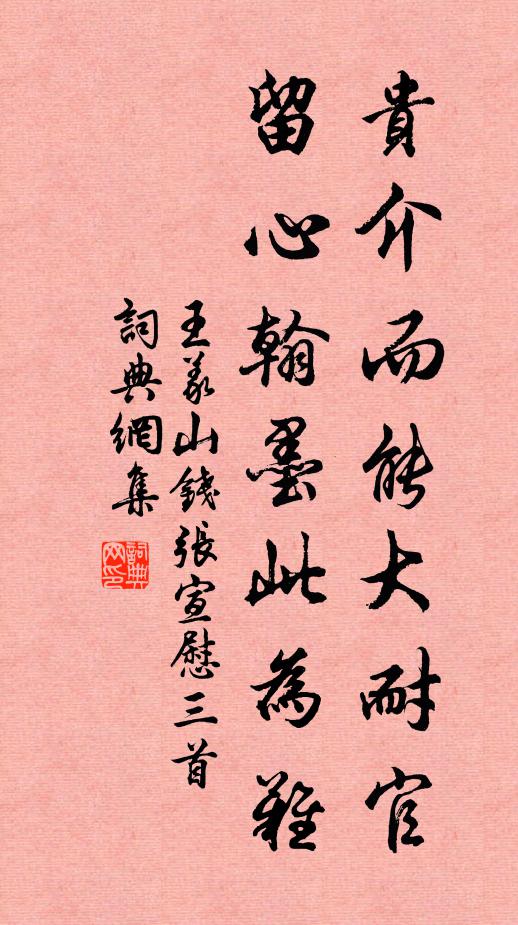 貴介而能大耐官
留心翰墨此為難
王義山錢張宣慰三首
詞典網集
詞典网印